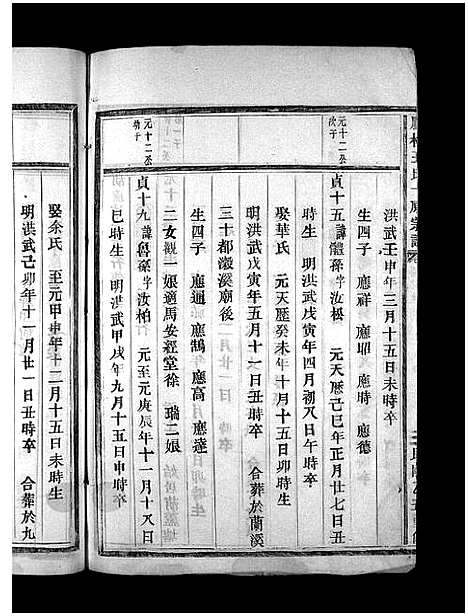 洪武壬申年三月十五日未時卒
生四子　應祥　應耶　應時　應德
元十二公
次子
貞十五　諱體孫　字汝松　元天歷己巳年正月廿七日丑
時生　明洪武戊寅年四月初八日午時卒
娶華氏　元天歷癸未年十月十五日卯時生
明洪武戊寅年五月十一日丑時卒　合葬於蘭溪
三十都瀫溪廟後
生四子　應迪　應鵠　應高　應達
二女觀一娘適馬安經堂徐　瑞二娘
元十二公
幼子
貞十九　諱魯孫　字汝柏　元至元庚辰年十一月十八日
巳時生　明洪武甲戌年九月十五日申時卒
娶余氏　至元甲申年十二月十五日未時生
明洪武己卯年十一月廿一日丑時卒　合葬於九